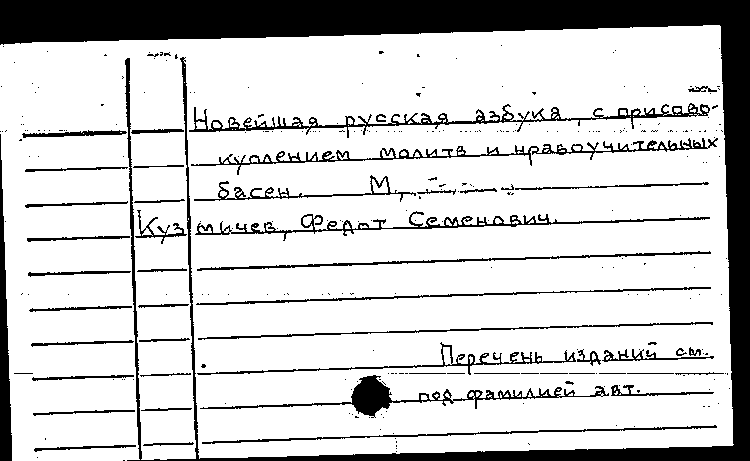 Новейшая русская азбука, с присово-
куплением молитв и нравоучительных
басен. М.,
Кузмичев, Федот Семенович.
Перечень изданий см.
под фамилией авт.